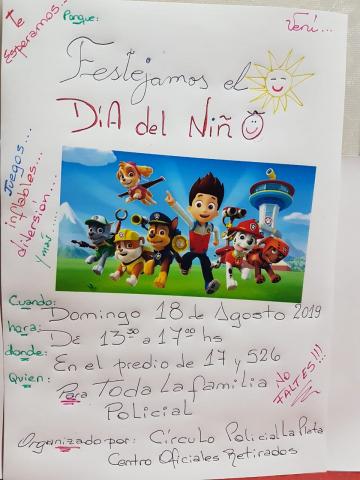 Te
esperamos...
Porque:
Vení...
Festejamos el
DÍA del Niño
Juegos...
inflables...
diversión...
y más...
Cuando: Domingo 18 de Agosto 2019
hora: De 13:30 a 17:00 hs
donde: En el predio de 17 y 526
Quien: Para Toda La familia
Policial
NO
FALTES!!!
Organizado por: Círculo Policial La Plata
Centro Oficiales Retirados